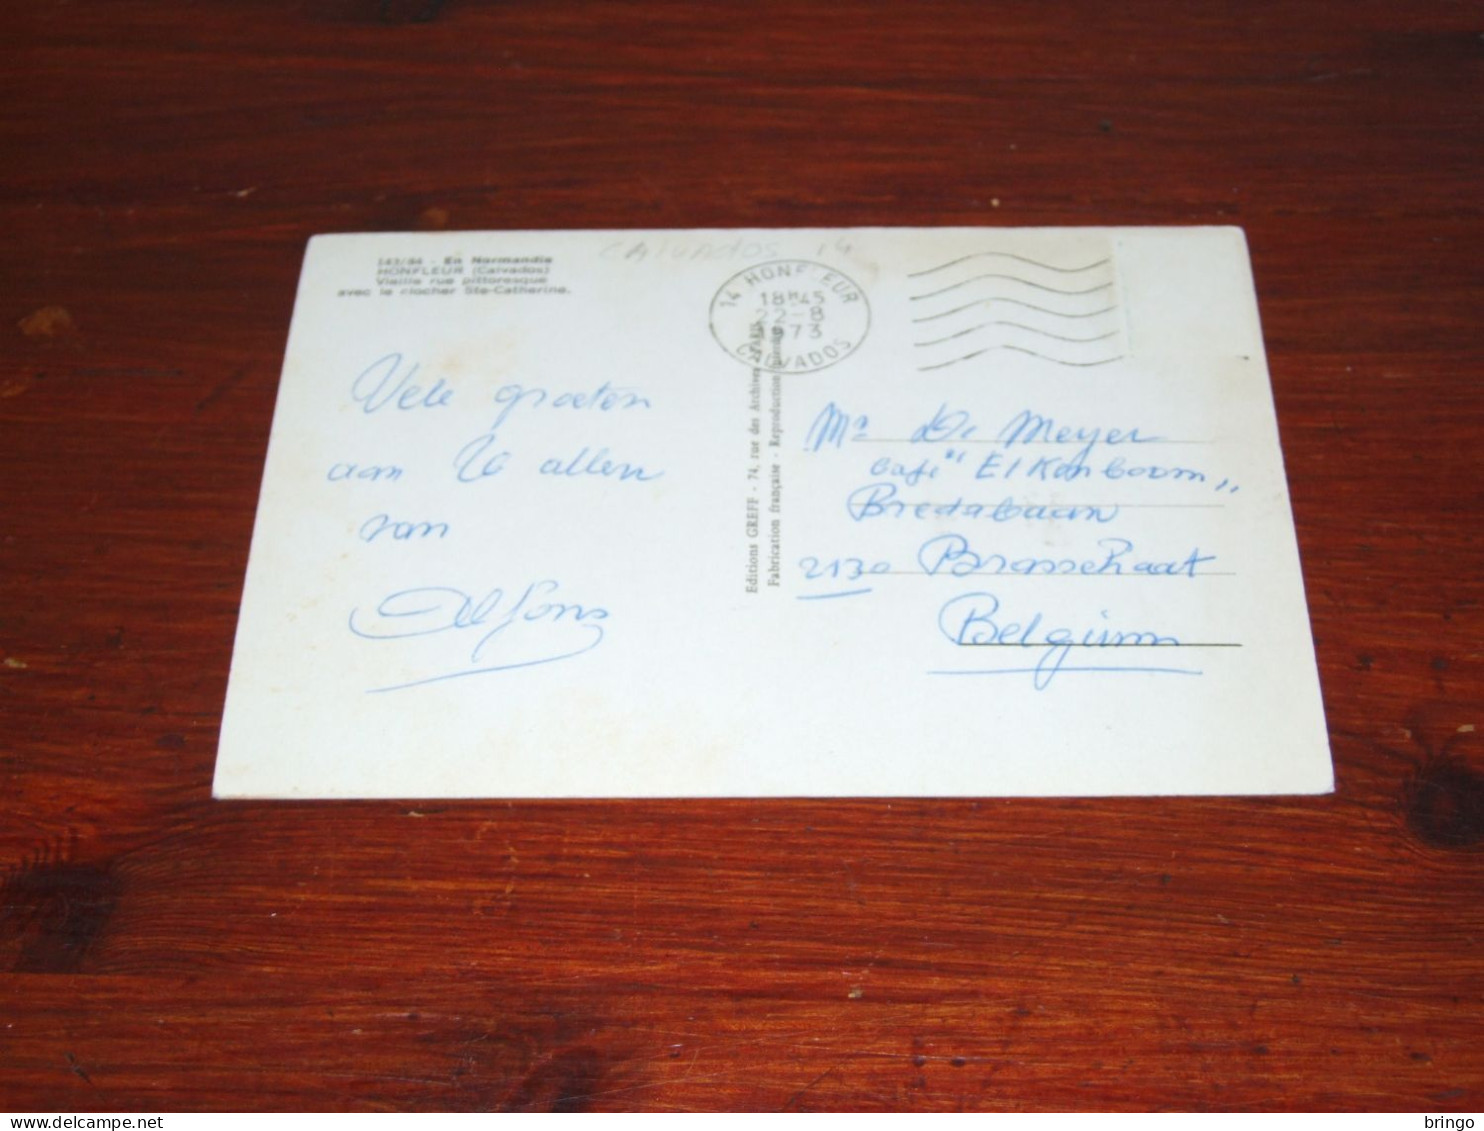 143/84 - En Normandie
HONFLEUR (Calvados)
Vieille rue pittoresque
avec le clocher Ste-Catherine.
CALVADOS 14
14 HONFLEUR
18H45
22-8
1973
CALVADOS
Vele groeten
aan U allen
van
Alfons
Editions GREFF - 74, rue des Archives - PARIS
Fabrication française - Reproduction interdite
Mr De Meyer
Café "Eikenboom"
Bredabaan
2130 Brasschaat
Belgium
delcampe.net
bringo